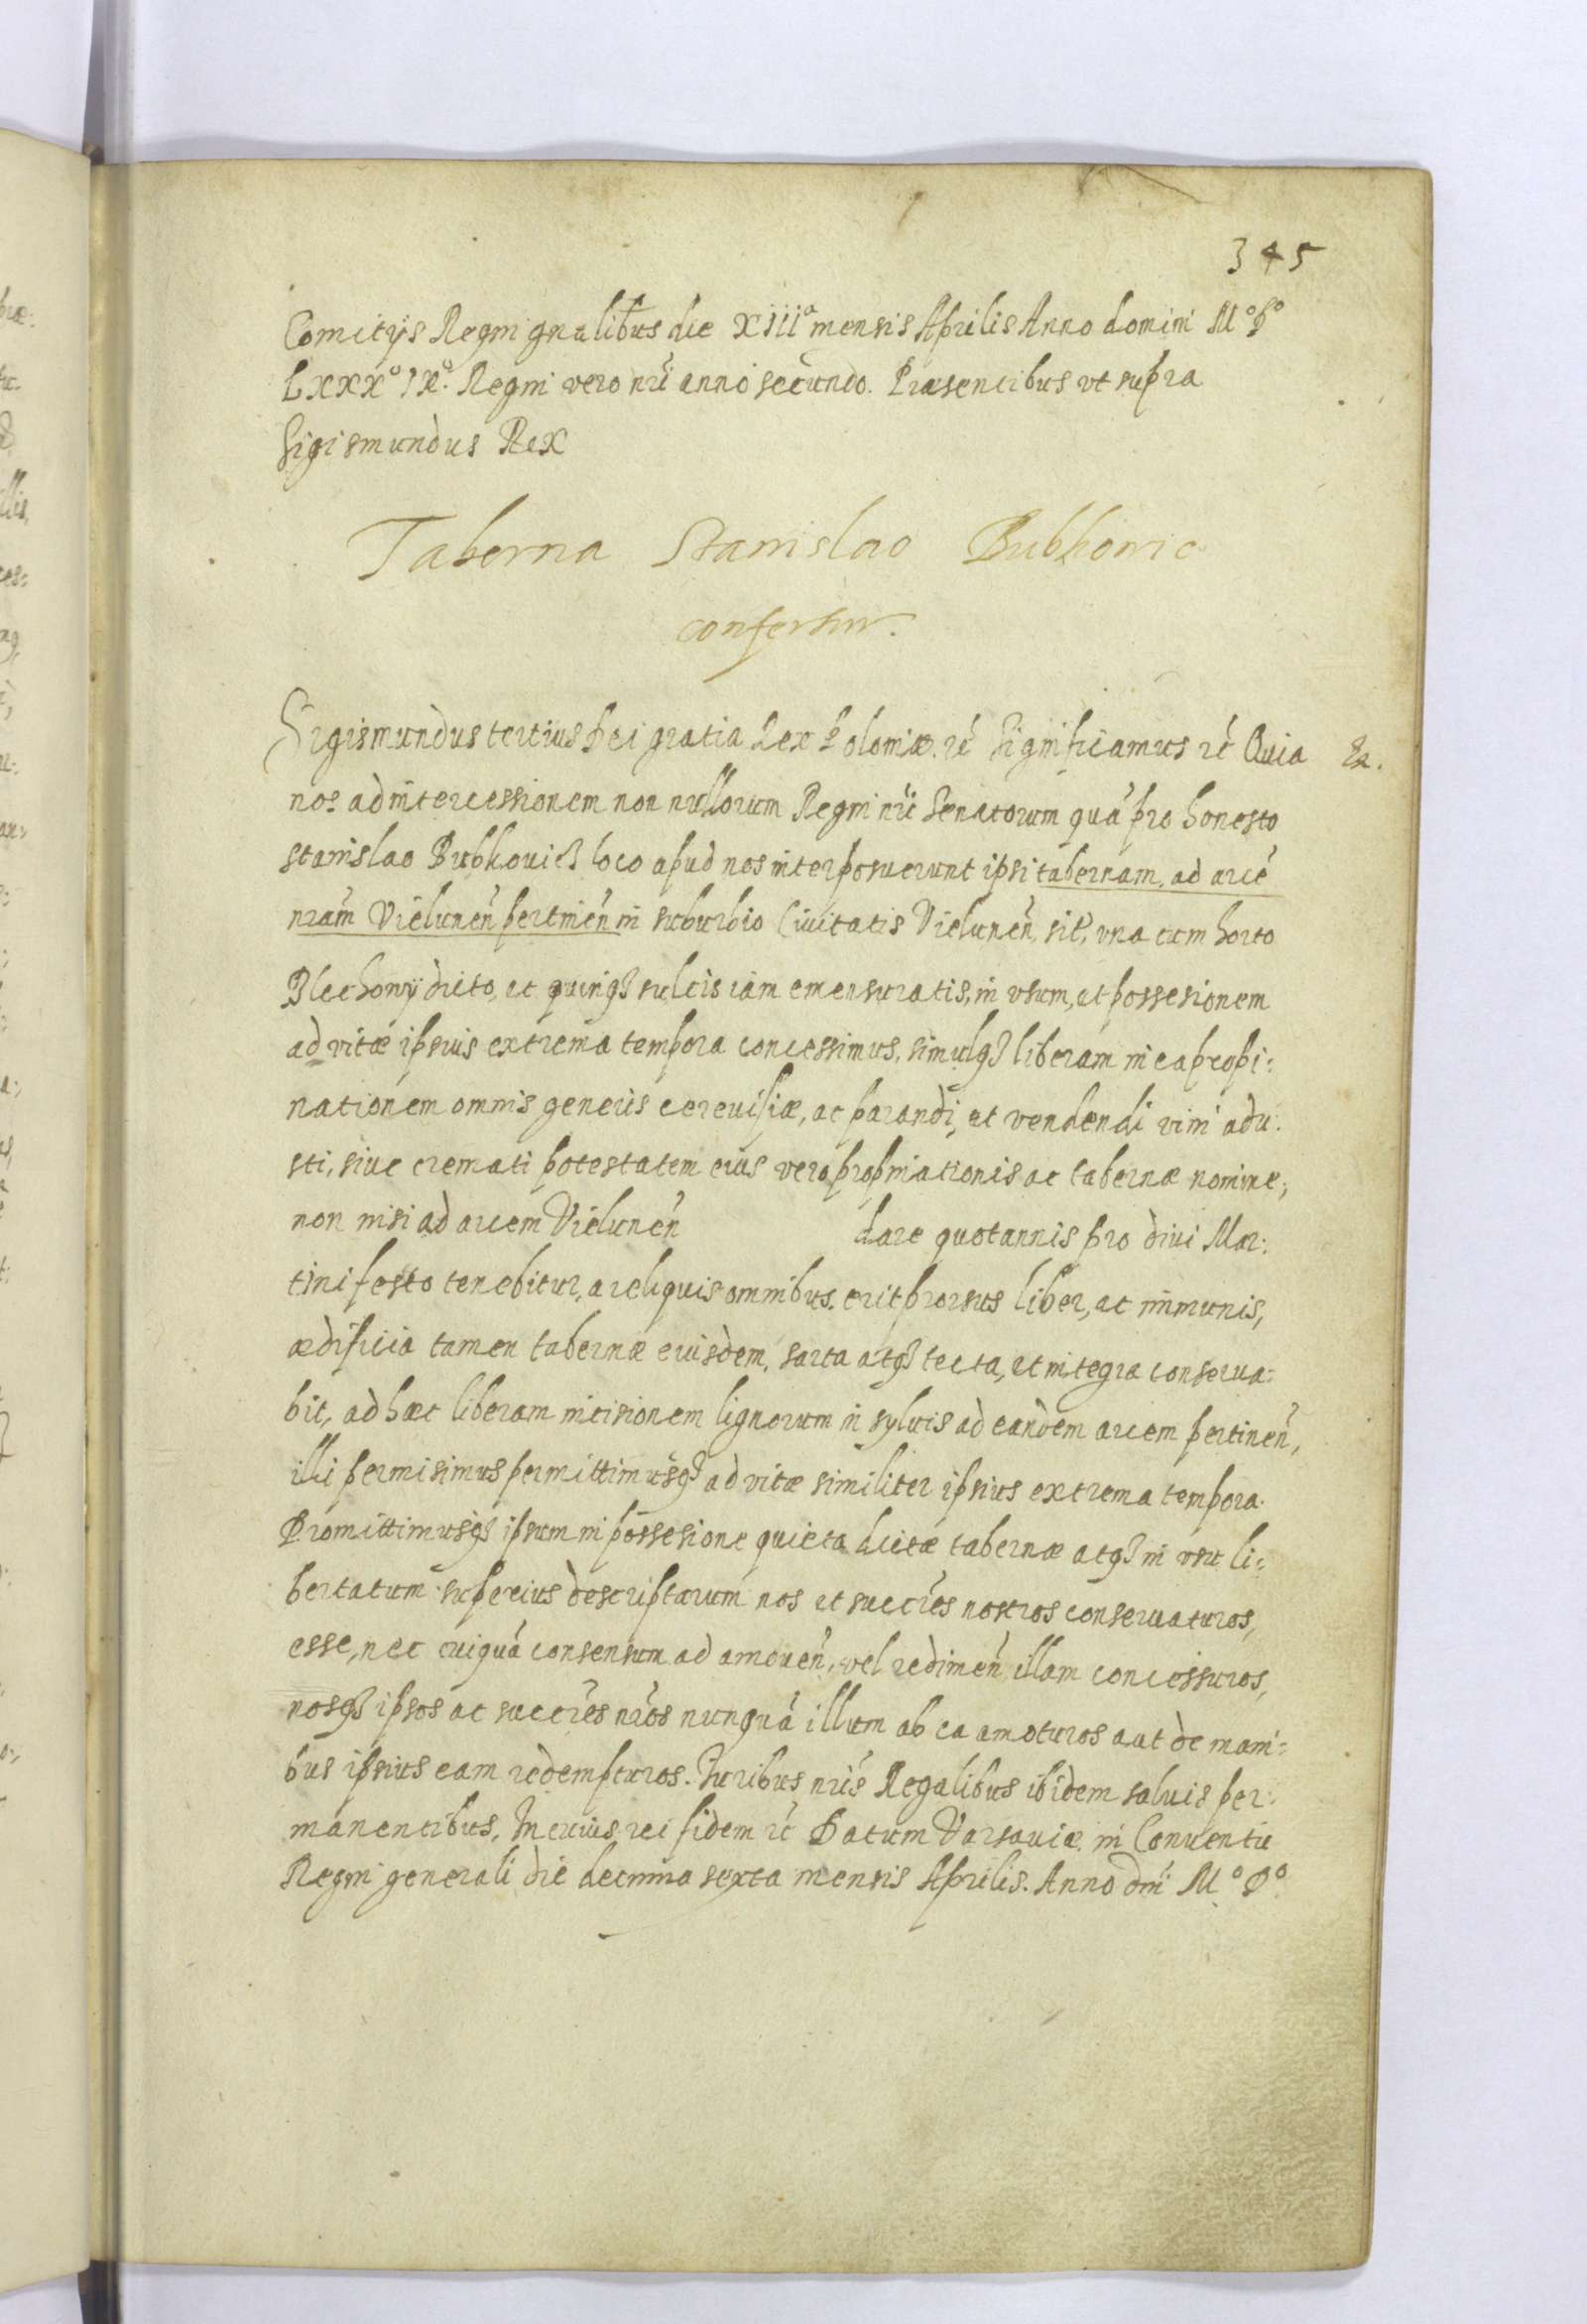 345
Comitijs Regni gnalibus die XIIIa mensis Aprilis Anno domini Mo Do
LXXXo IXo. Regni vero nri anno secundo. Præsentibus vt supra
Sigismundus Rex
Taberna Stanislao Bubkowic
confertur.
Sigismundus tertius Dei gratia Rex Poloniæ. rc̃ Significamus rc̃ Quia
nos ad intercessionem non nullorum Regni nri Senatorum quã pro honesto
stanislao Bubkouicz loco apud nos interposuerunt ipsi tabernam, ad arcẽ
nram̃ Vielunen̄ pertinen̄ in suburbio Ciuitatis Vielunen̄, sit̃, vna cum horto
Blechowy dicto, et quinqz sulcis iam emensuratis, in vsum, et possesionem
ad vitæ ipsius extrema tempora concessimus, simulqz liberam in ea propi:
nationem omnis generis cereuisiæ, ac parandi, et vendendi vini adu:
sti, siue cremati potestatem eius vero propinationis ac tabernæ nomine,
non nisi ad arcem Vielunen̄ dare quotannis pro diui Mar:
tini festo tenebitur, a reliquis omnibus. erit prorsus liber, ac immunis,
ædificia tamen tabernæ eiusdem, sarta atqz tecta, et integra conserua:
bit, ad hæc liberam incisionem lignorum in syluis ad eandem arcem pertinen̄,
illi permisimus permittimusqz ad vitæ similiter ipsius extrema tempora.
Promittimusqz ipsum in possesione quieta dictæ tabernæ atqz in vsu li:
bertatum superius descriptarum nos et succr̃es nostros conseruaturos,
esse, nec cuiquã consensum ad amouen̄, vel redimen̄ illam concessuros,
nosqz ipsos ac succr̃es nr̃os nunquã illum ab ea amoturos aut de mani:
bus ipsius eam redempturos. Iuribus nr̃is Regalibus ibidem saluis per:
manentibus, In cuius rei fidem rc̃ Datum Varsauiæ in Conuentu
Regni generali die decima sexta mensis Aprilis. Anno dni Mo Do